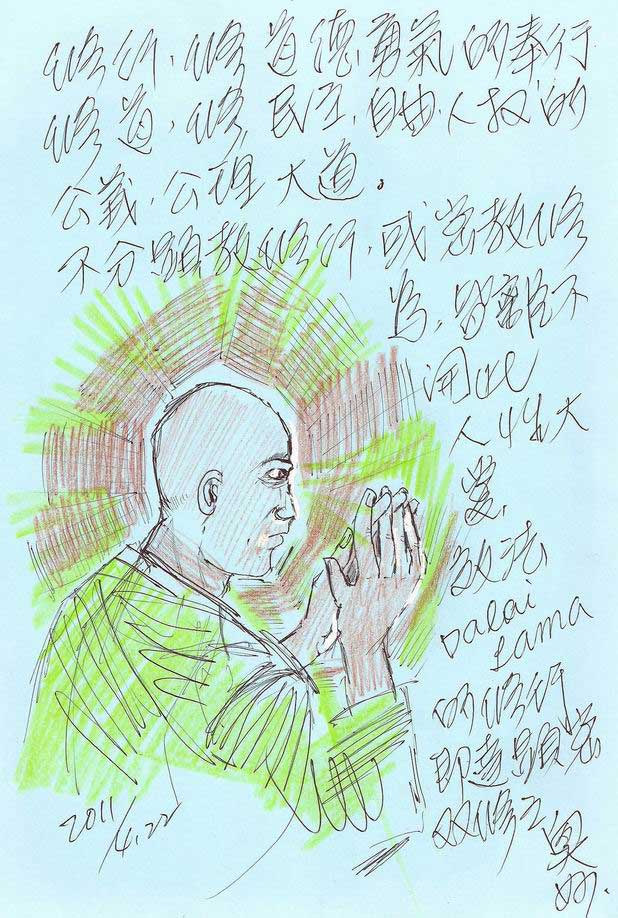 修行，修道德勇氣的奉行
修道，修民主，自由，人权的
公義，公理大道。
不分顯教修行，或密教修
為，皆離不
開此
人性大
愛，
效法
Dalai
Lama
的修行
即達顯密
双修之
奧
妙.
2011
4.22